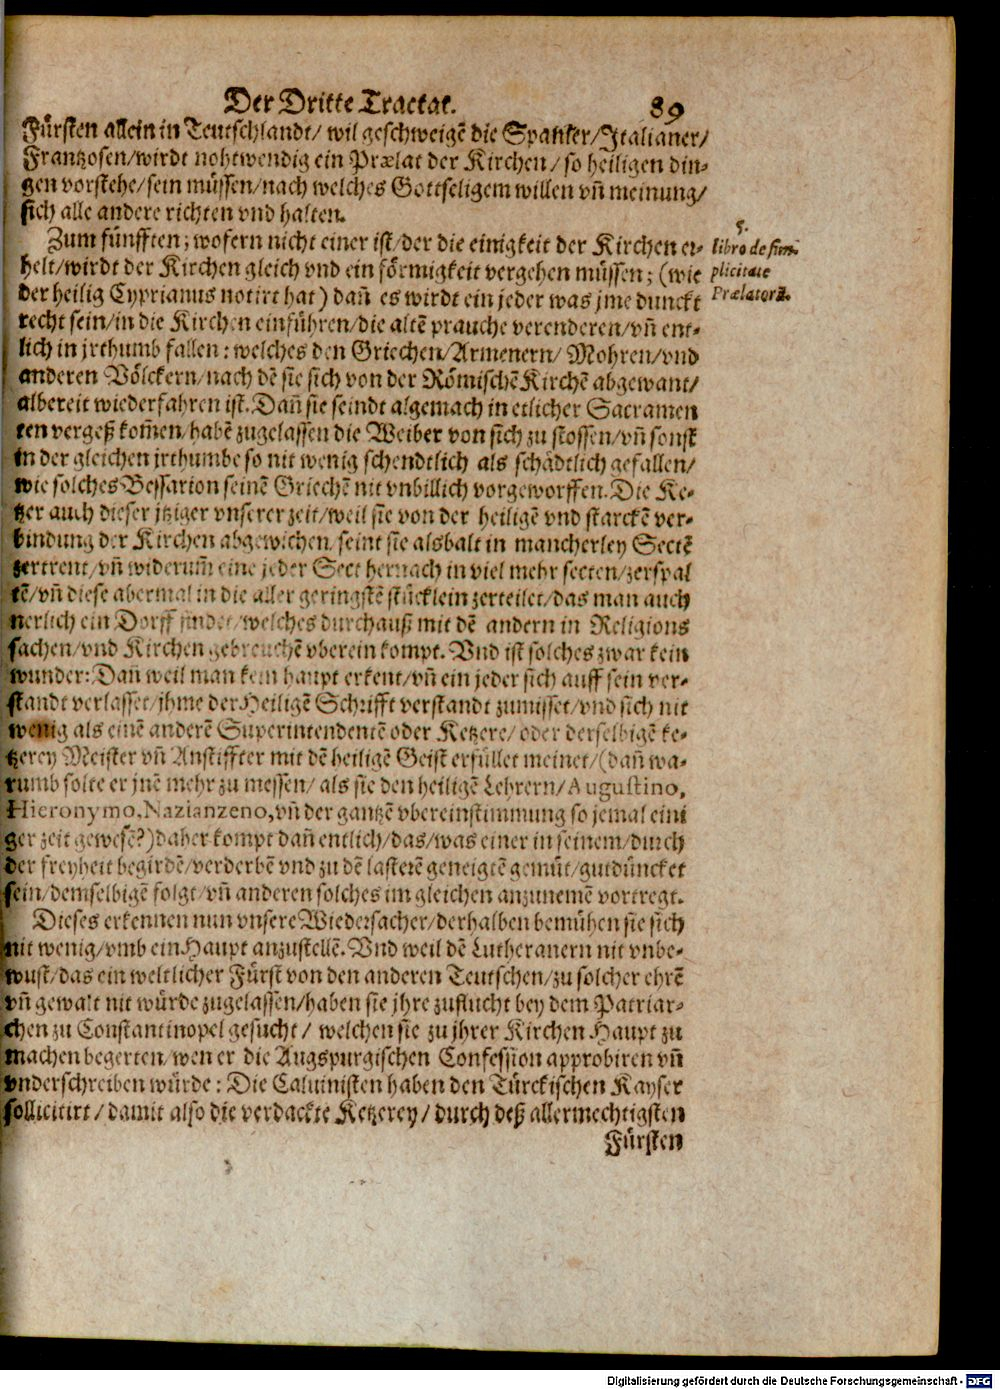 Der Dritte Tractat. 89
Fürsten allein in Teutschlandt/ wil geschweigē die Spanier/Italianer/
Frantzosen/wirdt nohtwendig ein Prælat der Kirchen/ so heiligen din-
gen vorstehe/sein müssen/nach welches Gottseligem willen vñ meinung/
sich alle andere richten vnd halten.
Zum fünfften; wofern nicht einer ist/der die einigkeit der Kirchen er-
helt/wirdt der Kirchen gleich vnd ein förmigkeit vergehen müssen; (wie
der heilig Cyprianus notirt hat) dañ es wirdt ein jeder was jme dunckt
recht sein/in die Kirchen einführen/die altē prauche verenderen/vñ ent-
lich in jrthumb fallen: welches den Griechen/Armenern/ Mohren/vnd
anderen Völckern/nach dē sie sich von der Römischē Kirchē abgewant/
albereit wiederfahren ist. Dañ sie seindt algemach in etlicher Sacramen
ten vergeß kom̃en/habē zugelassen die Weiber von sich zu stossen/vñ sonst
in der gleichen jrthumbe so nit wenig schendtlich als schädtlich gefallen/
wie solches Bessarion seinē Griechē nit vnbillich vorgeworffen. Die Ke-
tzer auch dieser jtziger vnserer zeit/weil sie von der heiligē vnd starckē ver-
bindung der Kirchen abgewichen, seint sie alsbalt in mancherley Sectē
zertrent/vñ widerum̃ eine jeder Sect hernach in viel mehr secten/zerspal
tē/vñ diese abermal in die aller geringstē stücklein zerteilet/das man auch
nerlich ein Dorff findet/welches durchauß mit dē andern in Religions
sachen/vnd Kirchen gebreuchē vberein kompt. Vnd ist solches zwar kein
wunder: Dañ weil man kein haupt erkent/vñ ein jeder sich auff sein ver-
standt verlasset/jhme der Heiligē Schrifft verstandt zumisset/vnd sich nit
wenig als einē anderē Superintendentē oder Ketzere/ oder derselbigē ke-
tzerey Meister vñ Anstiffter mit dē heiligē Geist erfüllet meinet/(dañ wa-
rumb solte er jnē mehr zu messen/ als sie den heiligē Lehrern/Augustino,
Hieronymo, Nazianzeno, vñ der gantzē vbereinstimmung so jemal eini
ger zeit gewesē?) daher kompt dañ entlich/das/was einer in seinem/durch
der freyheit begirdē/verderbē vnd zu dē lasterē geneigtē gemüt/gutdüncket
sein/demselbigē folgt/vñ anderen solches im gleichen anzunemē vortregt.
Dieses erkennen nun vnsere Wiedersacher/derhalben bemühen sie sich
nit wenig/vmb ein Haupt anzustellē. Vnd weil dē Lutheranern nit vnbe-
wust/das ein weltlicher Fürst von den anderen Teutschen/zu solcher ehrē
vñ gewalt nit würde zugelassen/haben sie jhre zuflucht bey dem Patriar-
chen zu Constantinopel gesucht/ welchen sie zu jhrer Kirchen Haupt zu
machen begerten/wen er die Augspurgischen Confession approbiren vñ
vnderschreiben würde: Die Caluinisten haben den Türckischen Kayser
sollicitirt/ damit also die verdackte Ketzerey/ durch deß allermechtigsten
Fürsten
5.
libro de sim-
plicitate
Prælatorū.
Digitalisierung gefördert durch die Deutsche Forschungsgemeinschaft - DFG